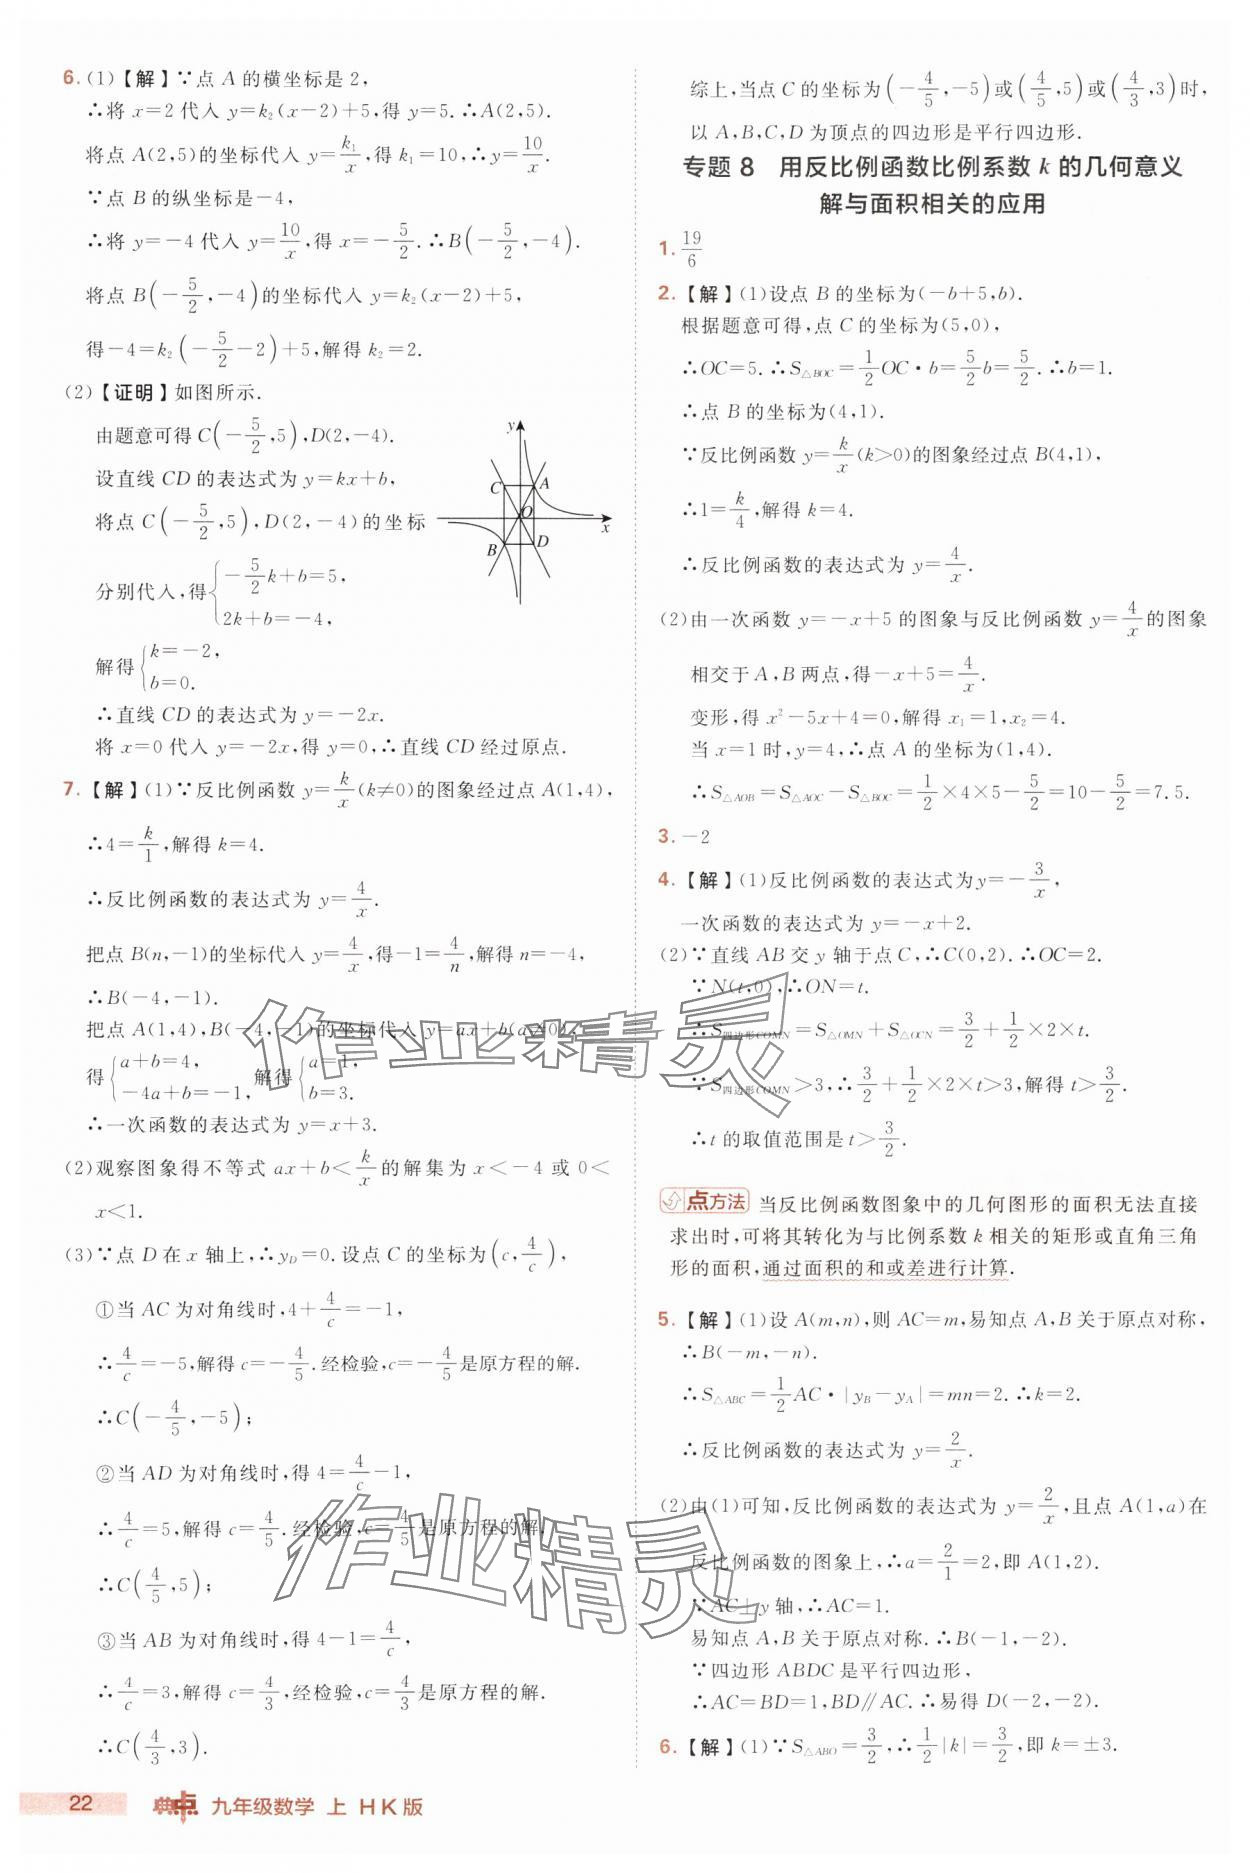 6. (1)【解】∵点 A 的横坐标是 2,
∴将 x=2 代入 y=k₂(x-2)+5,得 y=5. ∴A(2,5).
将点 A(2,5)的坐标代入 y=k₁/x,得 k₁=10,∴y=10/x.
∵点 B 的纵坐标是-4,
∴将 y=-4 代入 y=10/x,得 x=-5/2. ∴B(-5/2,-4).
将点 B(-5/2,-4)的坐标代入 y=k₂(x-2)+5,
得-4=k₂(-5/2-2)+5,解得 k₂=2.
(2)【证明】如图所示.
由题意可得 C(-5/2,5),D(2,-4).
设直线 CD 的表达式为 y=kx+b,
将点 C(-5/2,5),D(2,-4)的坐标
分别代入,得{-5/2k+b=5,
2k+b=-4,
解得{k=-2,
b=0.
∴直线 CD 的表达式为 y=-2x.
将 x=0 代入 y=-2x,得 y=0,∴直线 CD 经过原点.
y
C A
O
x
B D
7.【解】(1)∵反比例函数 y=k/x(k≠0)的图象经过点 A(1,4),
∴4=k/1,解得 k=4.
∴反比例函数的表达式为 y=4/x.
把点 B(n,-1)的坐标代入 y=4/x,得-1=4/n,解得 n=-4,
∴B(-4,-1).
把点 A(1,4),B(-4,-1)的坐标代入 y=ax+b(a≠0),
得{a+b=4,
-4a+b=-1, 解得{a=1,
b=3.
∴一次函数的表达式为 y=x+3.
(2)观察图象得不等式 ax+b<k/x的解集为 x<-4 或 0<
x<1.
(3)∵点 D 在 x 轴上,∴y_D=0.设点 C 的坐标为(c,4/c),
①当 AC 为对角线时,4+4/c=-1,
∴4/c=-5,解得 c=-4/5.经检验,c=-4/5是原方程的解.
∴C(-4/5,-5);
②当 AD 为对角线时,得 4=4/c-1,
∴4/c=5,解得 c=4/5.经检验,c=4/5是原方程的解.
∴C(4/5,5);
③当 AB 为对角线时,得 4-1=4/c,
∴4/c=3,解得 c=4/3,经检验,c=4/3是原方程的解.
∴C(4/3,3).
综上,当点 C 的坐标为(-4/5,-5)或(4/5,5)或(4/3,3)时,
以 A,B,C,D 为顶点的四边形是平行四边形.
专题 8 用反比例函数比例系数 k 的几何意义
解与面积相关的应用
1. 19/6
2.【解】(1)设点 B 的坐标为(-b+5,b).
根据题意可得,点 C 的坐标为(5,0),
∴OC=5. ∴S△BOC=1/2OC·b=5/2b=5/2. ∴b=1.
∴点 B 的坐标为(4,1).
∵反比例函数 y=k/x(k>0)的图象经过点 B(4,1),
∴1=k/4,解得 k=4.
∴反比例函数的表达式为 y=4/x.
(2)由一次函数 y=-x+5 的图象与反比例函数 y=4/x的图象
相交于 A,B 两点,得-x+5=4/x.
变形,得 x²-5x+4=0,解得 x₁=1,x₂=4.
当 x=1 时,y=4,∴点 A 的坐标为(1,4).
∴S△AOB=S△AOC-S△BOC=1/2×4×5-5/2=10-5/2=7.5.
3. -2
4.【解】(1)反比例函数的表达式为y=-3/x,
一次函数的表达式为 y=-x+2.
(2)∵直线 AB 交 y 轴于点 C,∴C(0,2). ∴OC=2.
∵N(t,0),∴ON=t.
∴S四边形COMN=S△OMN+S△OCN=3/2+1/2×2×t.
∵S四边形COMN>3,∴3/2+1/2×2×t>3,解得 t>3/2.
∴t 的取值范围是 t>3/2.
点方法 当反比例函数图象中的几何图形的面积无法直接
求出时,可将其转化为与比例系数 k 相关的矩形或直角三角
形的面积,通过面积的和或差进行计算.
5.【解】(1)设 A(m,n),则 AC=m,易知点 A,B 关于原点对称,
∴B(-m,-n).
∴S△ABC=1/2AC·|y_B-y_A|=mn=2. ∴k=2.
∴反比例函数的表达式为 y=2/x.
(2)由(1)可知,反比例函数的表达式为 y=2/x,且点 A(1,a)在
反比例函数的图象上,∴a=2/1=2,即 A(1,2).
∵AC⊥y 轴,∴AC=1.
易知点 A,B 关于原点对称. ∴B(-1,-2).
∵四边形 ABDC 是平行四边形,
∴AC=BD=1,BD∥AC. ∴易得 D(-2,-2).
6.【解】(1)∵S△ABO=3/2,∴1/2|k|=3/2,即 k=±3.
作业精灵
作业精灵
22 典点 九年级数学 上 HK版